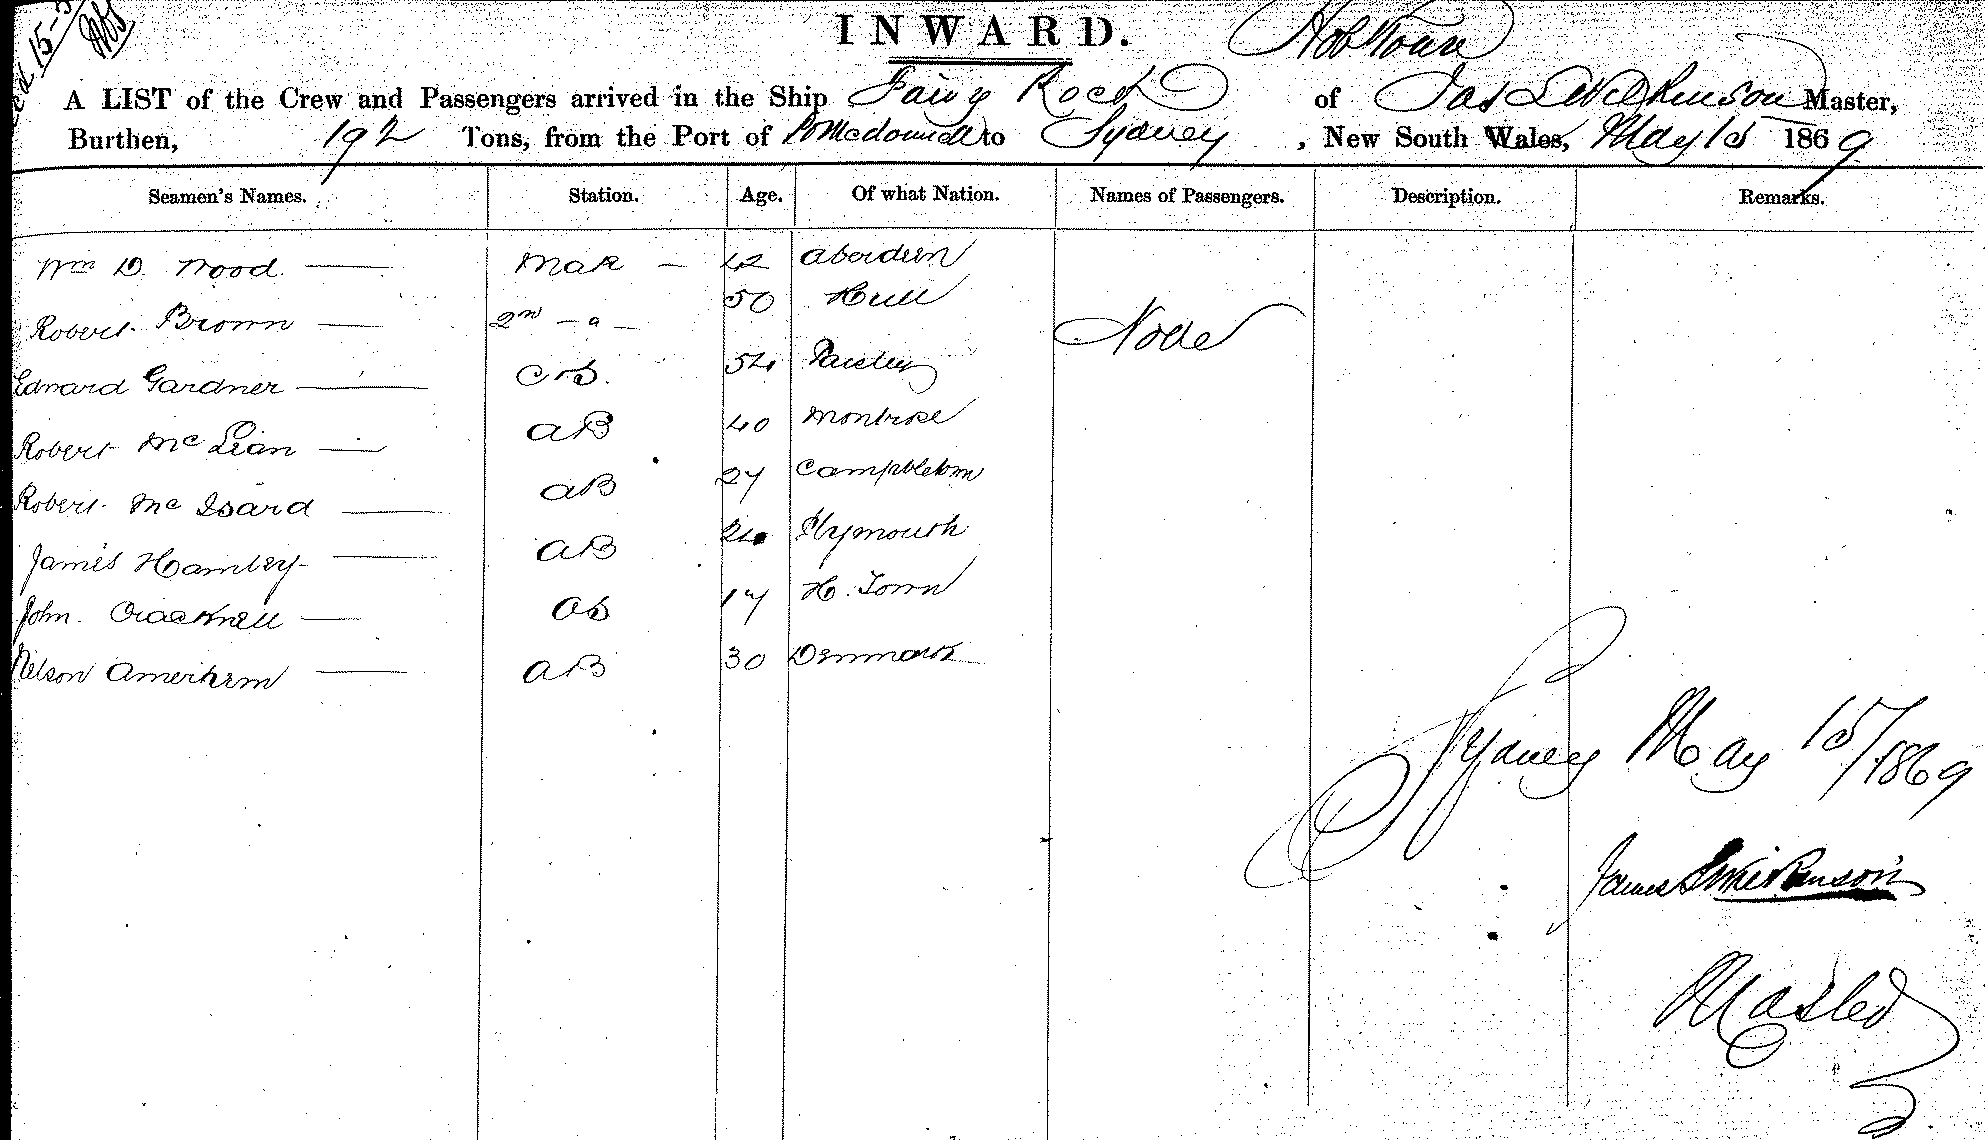 15-5
INWARD.
Hob Town
A LIST of the Crew and Passengers arrived in the Ship Fairy Rock of Jas S Wilkinson Master,
Burthen, 192 Tons, from the Port of P. McDonnell to Sydney, New South Wales, May 15 1869
Seamen's Names. Station. Age. Of what Nation. Names of Passengers. Description. Remarks.
Wm D. Wood Mate 42 Aberdeen
Robert Brown 2nd - a - 50 Hull
None
Edward Gardner C & S. 54 Paisley
Robert McLean AB 40 Montrose
Robert McIsard AB 27 Campbletown
James Hambey AB 24 Plymouth
John Cracknell OS 17 H. Town
Nelson AB 30 Denmark
Sydney May 15/1869
James S Wilkinson
Master